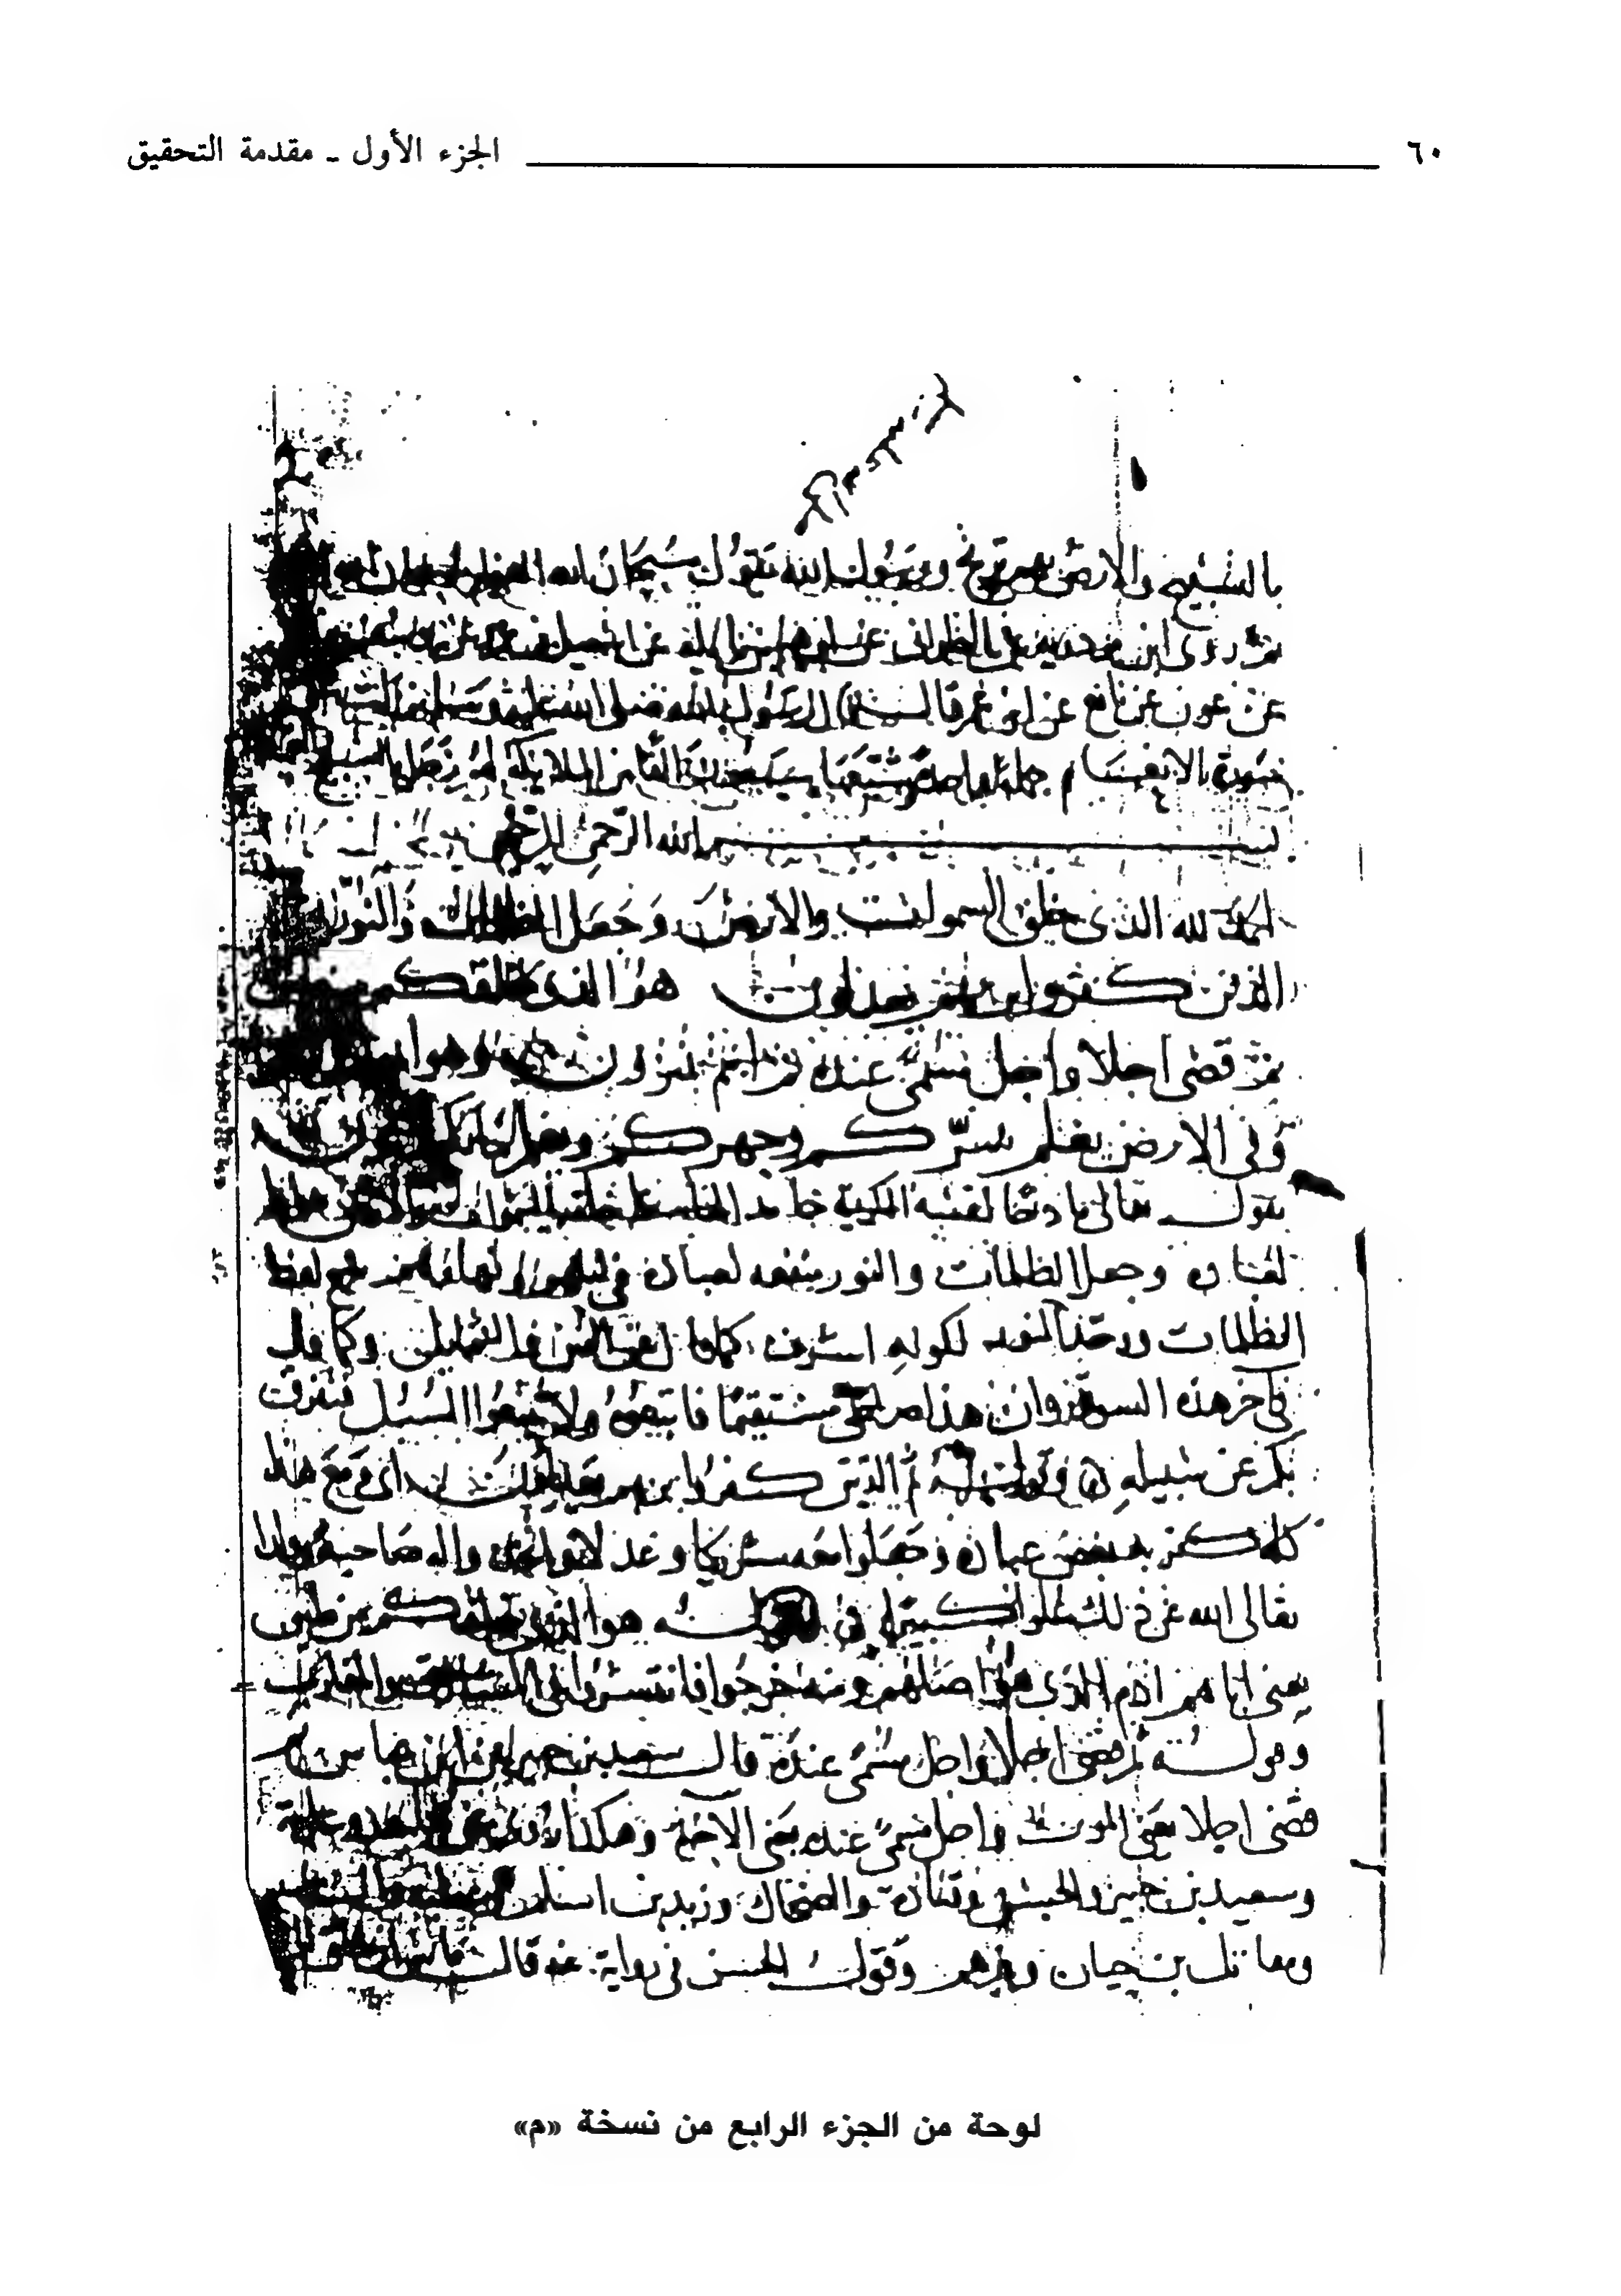 ٦٠ الجزء الأول ـ مقدمة التحقيق
بالتسبيح والأرض ترتج ورسول الله يقول سبحان الله العظيم
ثم روى ابن مردويه عن الطبراني عن ابراهيم بن نائلة عن اسمعيل بن عمرو عن يوسف
عن عون عن نافع عن ابن عمر قال قال رسول الله صلى الله عليه وسلم
سورة الانعام جملة واحدة وشيعها سبعون الفا من الملائكة لهم زجل بالتسبيح
بسم الله الرحمن الرحيم
الحمد لله الذي خلق السموات والارض وجعل الظلمات والنور
الذين كفروا بربهم يعدلون هو الذي خلقكم
ثم قضى اجلا واجل مسمى عنده ثم انتم تمترون وهو
وفي الارض يعلم سركم وجهركم ويعلم ما
يقول تعالى مادحا نفسه الكريمة حامدا لها على خلقه السموات والارض
لعباده وجعل الظلمات والنور منفعة لعباده في ليلهم ونهارهم فجمع لفظ
الظلمات ووحد النور لكونه اشرف كما قال عن اليمين والشمائل وكما قال
في آخر هذه السورة وان هذا صراطي مستقيما فاتبعوه ولا تتبعوا السبل فتفرق
بكم عن سبيله وقوله ثم الذين كفروا بربهم يعدلون اي ومع هذا
كله كفر به بعض عباده وجعلوا معه شريكا وعدلا واتخذوا له صاحبة وولدا
تعالى الله عن ذلك علوا كبيرا وقوله هو الذي خلقكم من طين
يعني اباهم ادم الذي هو اصلهم ومنه خرجوا فانتشروا في المشارق والمغارب
وقوله ثم قضى اجلا واجل مسمى عنده قال سعيد بن جبير عن ابن عباس ثم
قضى اجلا يعني الموت واجل مسمى عنده يعني الآخرة وهكذا روي عن مجاهد وعكرمة
وسعيد بن جبير والحسن وقتادة والضحاك وزيد بن اسلم وعطية والسدي
ومقاتل بن حيان وغيرهم وقول الحسن في رواية عنه قال
لوحة من الجزء الرابع من نسخة «م»